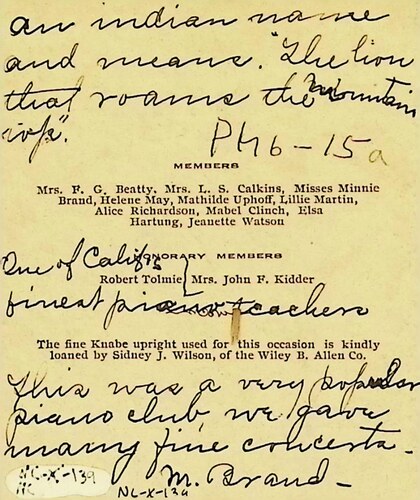 an indian name
and means. "The lion
that roams the mountain
tops".
PH 6-15a
MEMBERS
Mrs. F. G. Beatty, Mrs. L. S. Calkins, Misses Minnie
Brand, Helene May, Mathilde Uphoff, Lillie Martin,
Alice Richardson, Mabel Clinch, Elsa
Hartung, Jeanette Watson
HONORARY MEMBERS
One of Califs
Robert Tolmie Mrs. John F. Kidder
finest piano teachers
The fine Knabe upright used for this occasion is kindly
loaned by Sidney J. Wilson, of the Wiley B. Allen Co.
This was a very popular
piano club we gave
many fine concerts.
M. Brand-
NC-X-139
NC-X-139